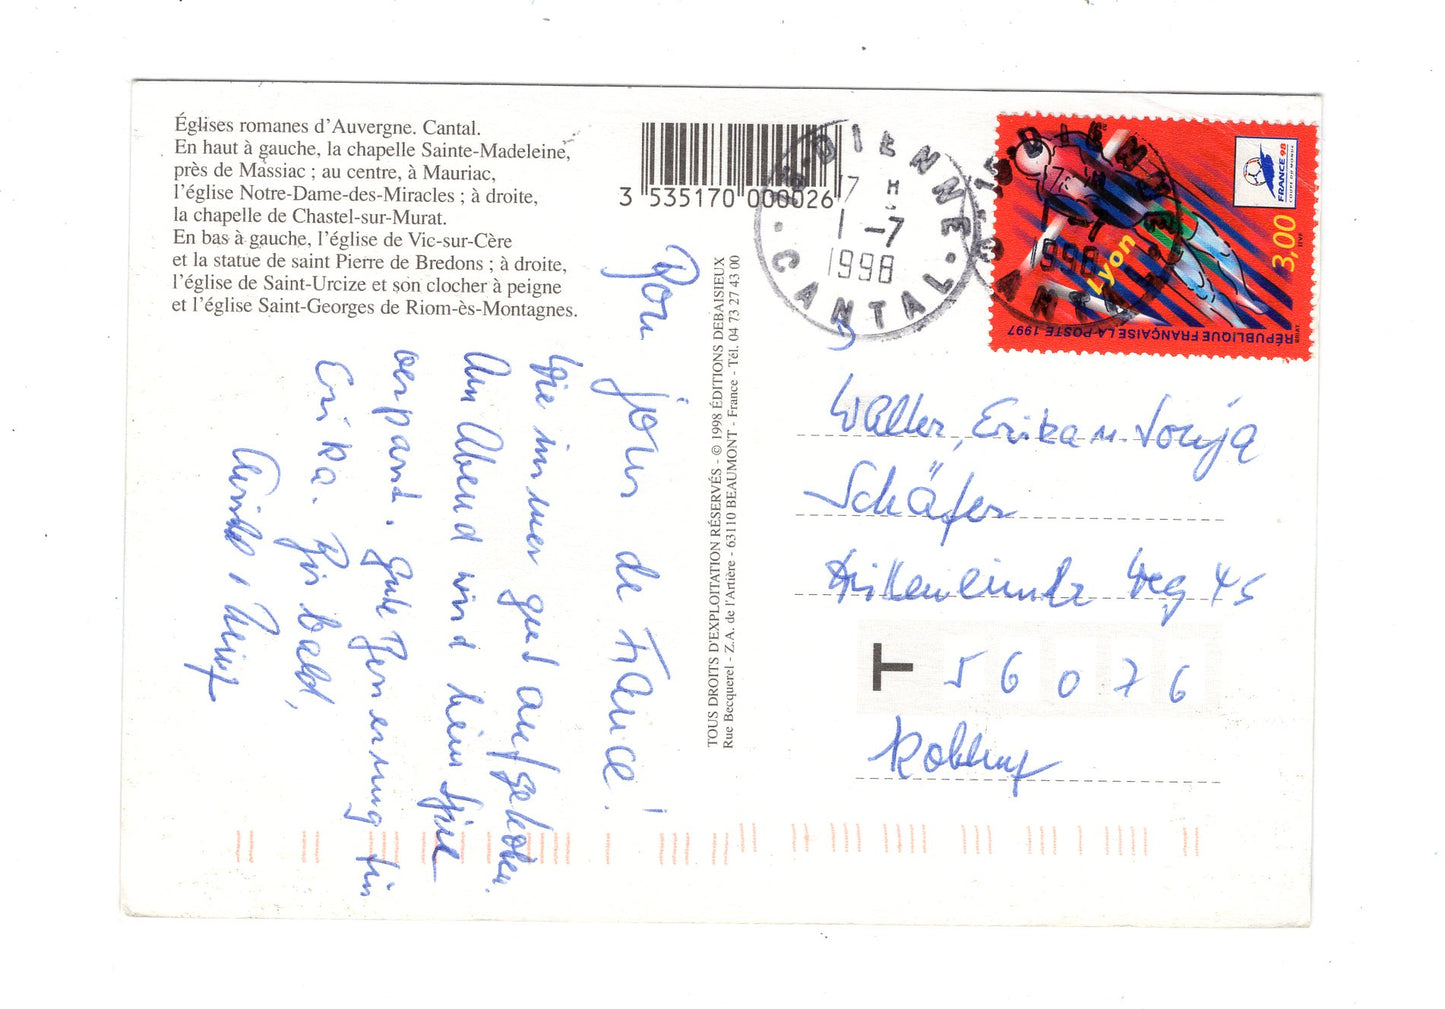 Églises romanes d'Auvergne. Cantal.
En haut à gauche, la chapelle Sainte-Madeleine,
près de Massiac ; au centre, à Mauriac,
l'église Notre-Dame-des-Miracles ; à droite,
la chapelle de Chastel-sur-Murat.
En bas à gauche, l'église de Vic-sur-Cère
et la statue de saint Pierre de Bredons ; à droite,
l'église de Saint-Urcize et son clocher à peigne
et l'église Saint-Georges de Riom-ès-Montagnes.
3 535170 000026
15 DIENNE
17 H
1-7
1998
CANTAL
Lyon
3,00
RF
FRANCE 98
COUPE DU MONDE
RÉPUBLIQUE FRANÇAISE LA POSTE 1997
BRIAT
Bon jour de France!
Wie immer gut aufgehoben.
Am Abend wird kein Spiel
verpasst. Gute Besserung für
Erika. Bis bald,
TOUS DROITS D'EXPLOITATION RÉSERVÉS - © 1998 ÉDITIONS DEBAISIEUX
Rue Becquerel - Z.A. de l'Artière - 63110 BEAUMONT - France - Tél. 04 73 27 43 00
Walter, Erika u. Sonja
Schäfer
Weg 45
T 56076
Koblenz